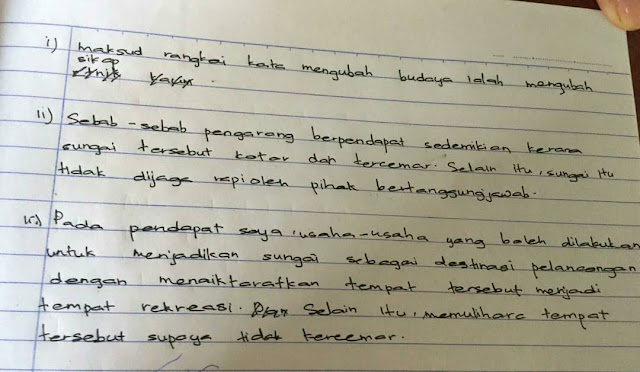 i) Maksud rangkai kata mengubah budaya ialah mengubah
sikap
ii) Sebab-sebab pengarang berpendapat sedemikian kerana
sungai tersebut kotor dan tercemar. Selain itu, sungai itu
tidak dijaga rapi oleh pihak bertanggungjawab.
iii) Pada pendapat saya, usaha-usaha yang boleh dilakukan
untuk menjadikan sungai sebagai destinasi pelancongan
dengan menaiktarafkan tempat tersebut menjadi
tempat rekreasi. Selain itu, memulihara tempat
tersebut supaya tidak tercemar.